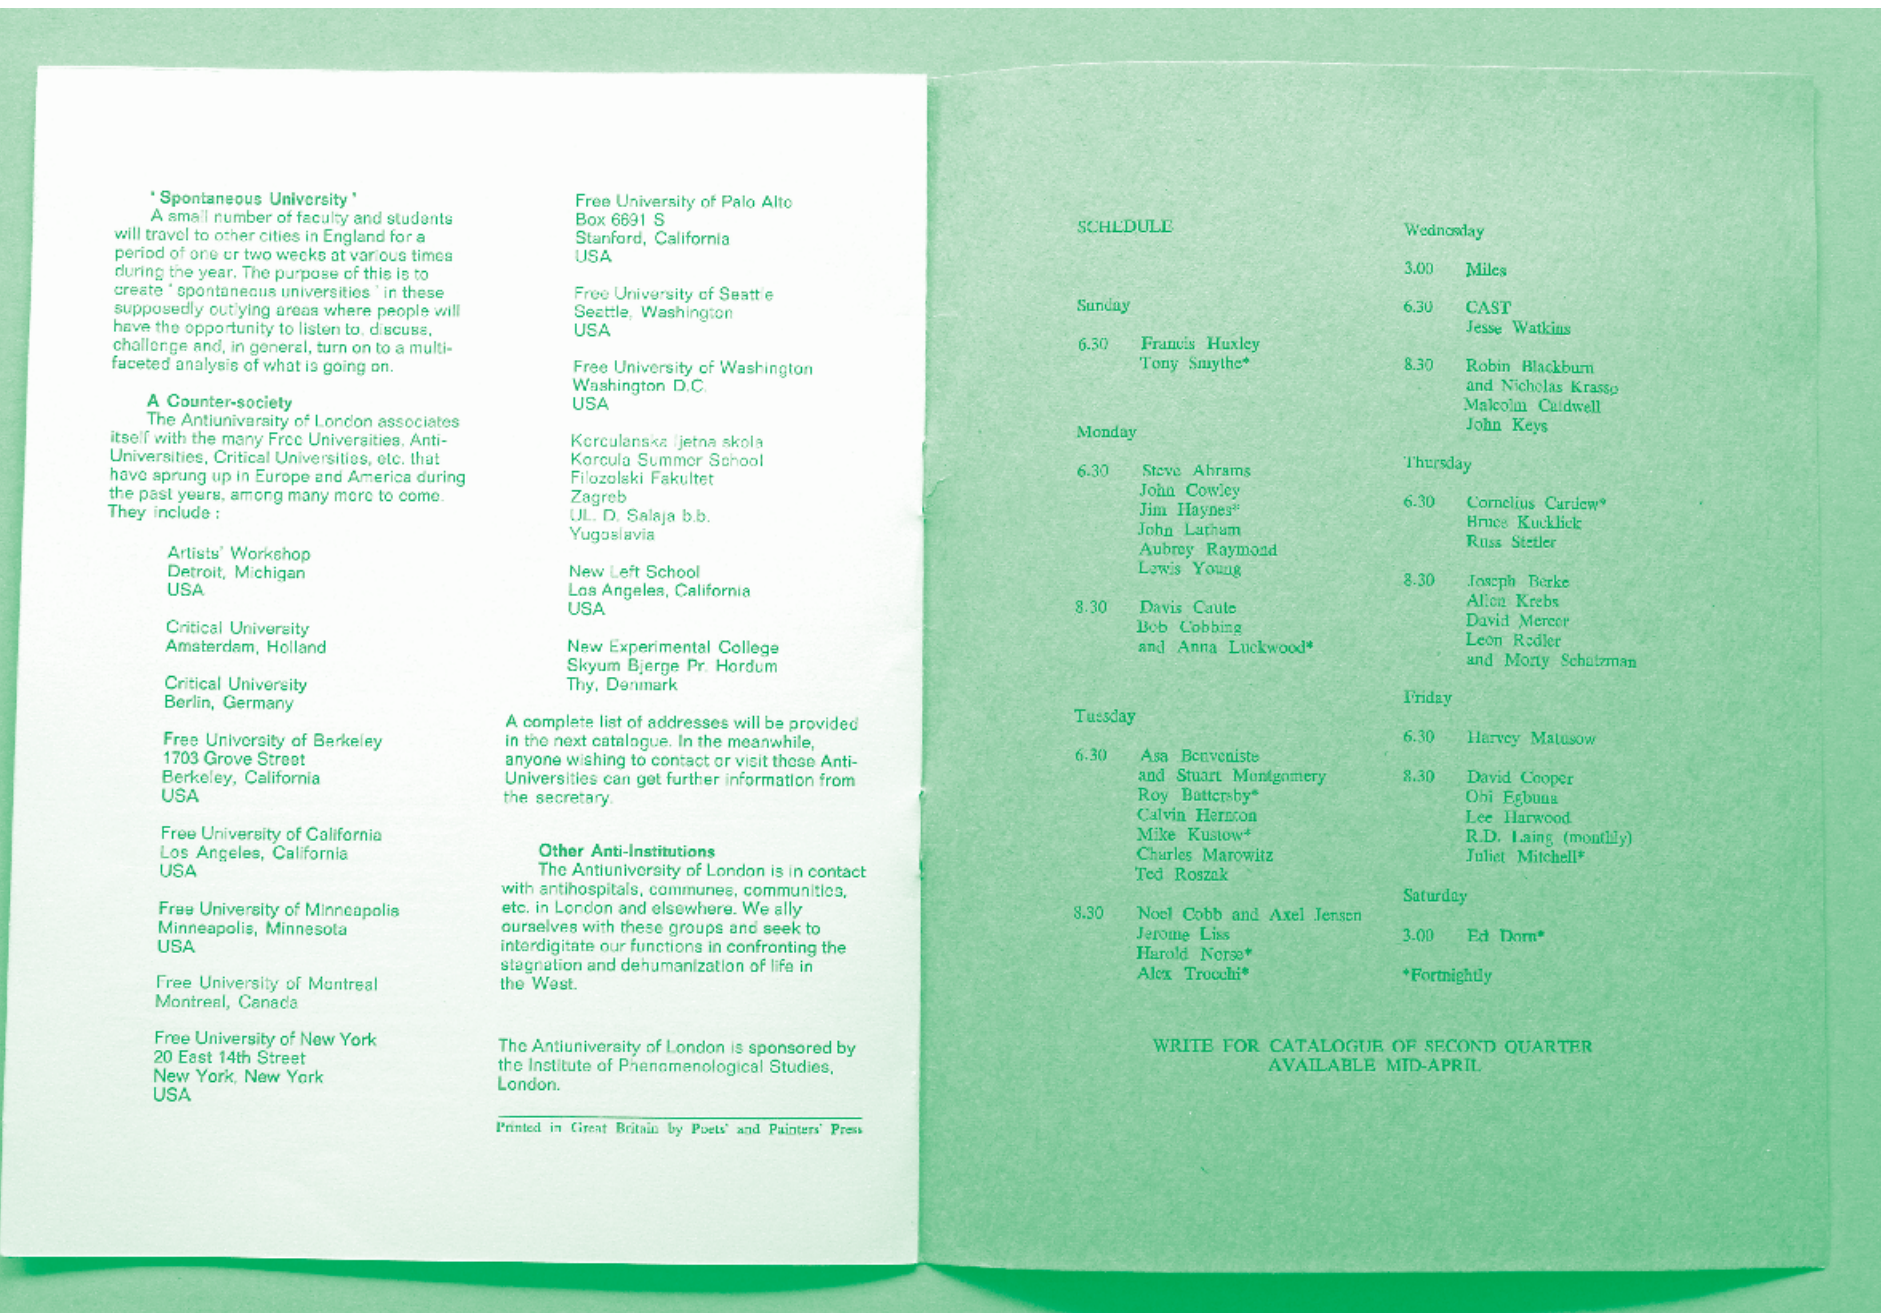 ' Spontaneous University '
A small number of faculty and students
will travel to other cities in England for a
period of one or two weeks at various times
during the year. The purpose of this is to
create ' spontaneous universities ' in these
supposedly outlying areas where people will
have the opportunity to listen to, discuss,
challenge and, in general, turn on to a multi-
faceted analysis of what is going on.
A Counter-society
The Antiuniversity of London associates
itself with the many Free Universities, Anti-
Universities, Critical Universities, etc. that
have sprung up in Europe and America during
the past years, among many more to come.
They include :
Artists' Workshop
Detroit, Michigan
USA
Critical University
Amsterdam, Holland
Critical University
Berlin, Germany
Free University of Berkeley
1703 Grove Street
Berkeley, California
USA
Free University of California
Los Angeles, California
USA
Free University of Minneapolis
Minneapolis, Minnesota
USA
Free University of Montreal
Montreal, Canada
Free University of New York
20 East 14th Street
New York, New York
USA
Free University of Palo Alto
Box 6691 S
Stanford, California
USA
Free University of Seattle
Seattle, Washington
USA
Free University of Washington
Washington D.C.
USA
Korculanska ljetna skola
Korcula Summer School
Filozolski Fakultet
Zagreb
UL. D. Salaja b.b.
Yugoslavia
New Left School
Los Angeles, California
USA
New Experimental College
Skyum Bjerge Pr. Hordum
Thy, Denmark
A complete list of addresses will be provided
in the next catalogue. In the meanwhile,
anyone wishing to contact or visit these Anti-
Universities can get further information from
the secretary.
Other Anti-Institutions
The Antiuniversity of London is in contact
with antihospitals, communes, communities,
etc. in London and elsewhere. We ally
ourselves with these groups and seek to
interdigitate our functions in confronting the
stagnation and dehumanization of life in
the West.
The Antiuniversity of London is sponsored by
the Institute of Phenomenological Studies,
London.
Printed in Great Britain by Poets' and Painters' Press
SCHEDULE
Sunday
6.30 Francis Huxley
Tony Smythe*
Monday
6.30 Steve Abrams
John Cowley
Jim Haynes*
John Latham
Aubrey Raymond
Lewis Young
8.30 Davis Caute
Bob Cobbing
and Anna Luckwood*
Tuesday
6.30 Asa Benveniste
and Stuart Montgomery
Roy Battersby*
Calvin Hernton
Mike Kustow*
Charles Marowitz
Ted Roszak
8.30 Noel Cobb and Axel Jensen
Jerome Liss
Harold Norse*
Alex Trocchi*
Wednesday
3.00 Miles
6.30 CAST
Jesse Watkins
8.30 Robin Blackburn
and Nicholas Krasso
Malcolm Caldwell
John Keys
Thursday
6.30 Cornelius Cardew*
Bruce Kucklick
Russ Stetler
8.30 Joseph Berke
Allen Krebs
David Mercer
Leon Redler
and Morty Schatzman
Friday
6.30 Harvey Matusow
8.30 David Cooper
Obi Egbuna
Lee Harwood
R.D. Laing (monthly)
Juliet Mitchell*
Saturday
3.00 Ed Dorn*
*Fortnightly
WRITE FOR CATALOGUE OF SECOND QUARTER
AVAILABLE MID-APRIL